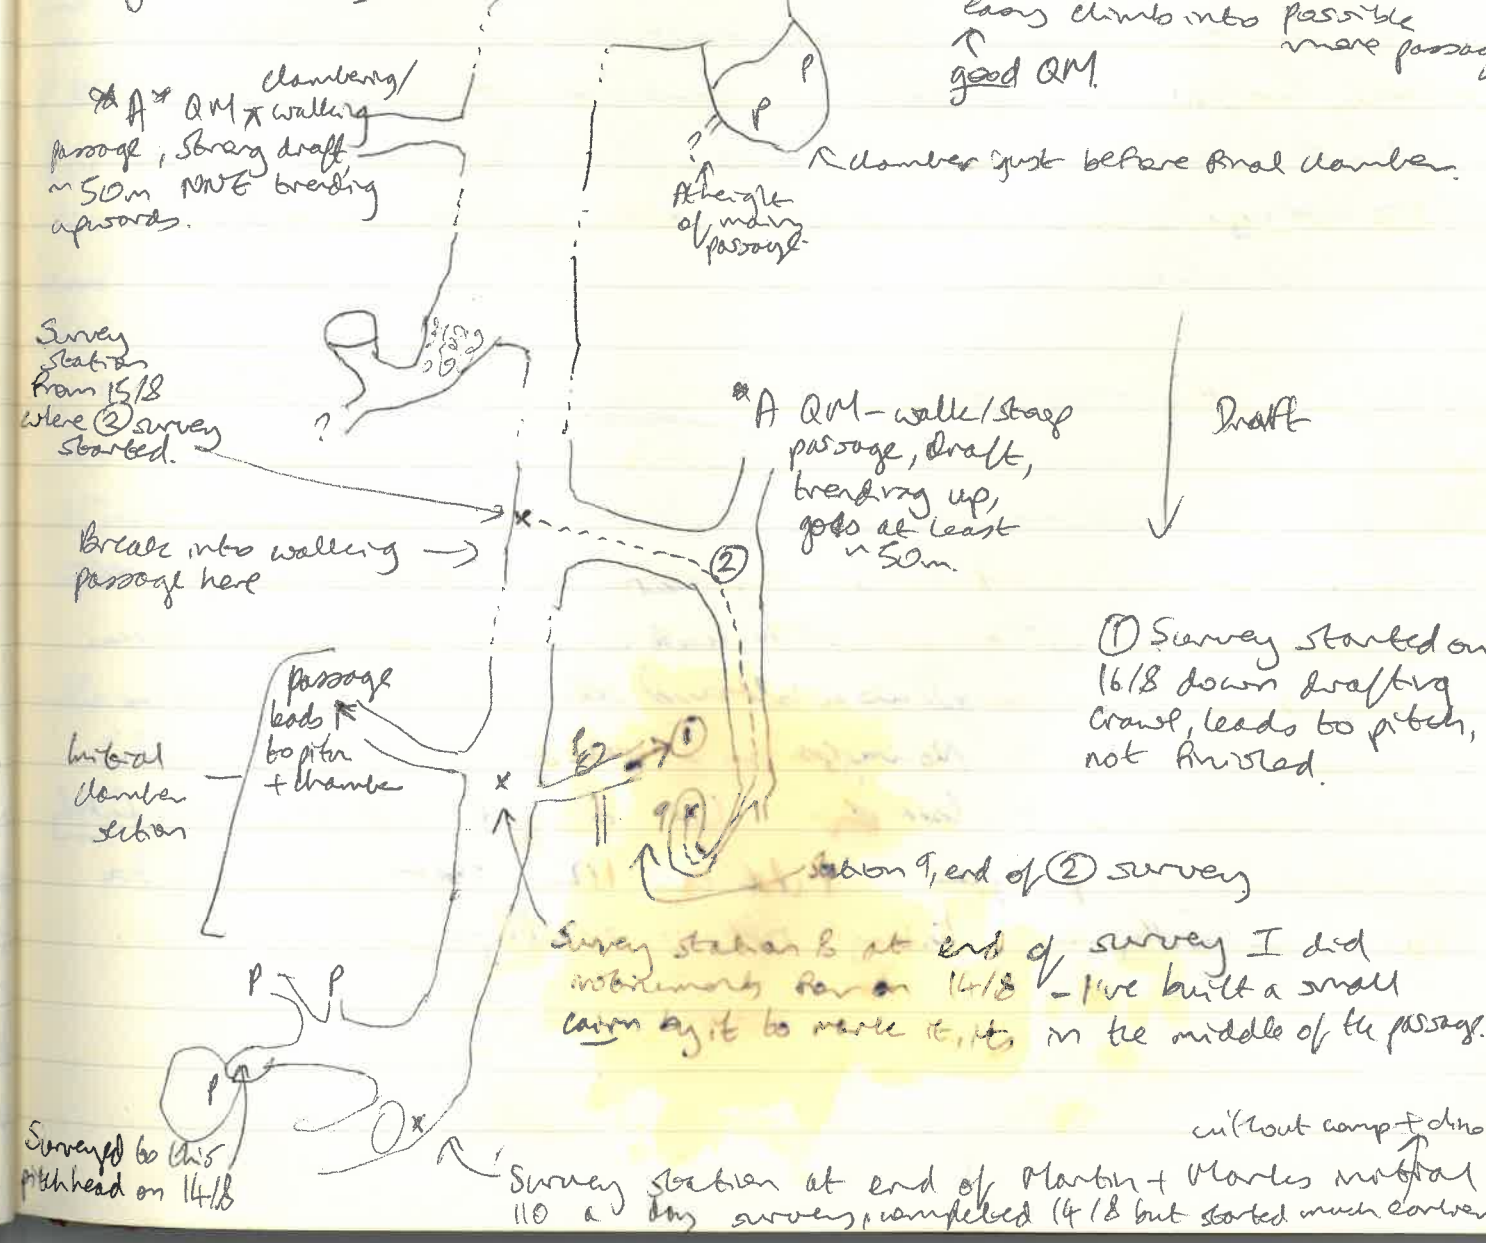 easy climb into possible
more passag
good QM.
P
P
clambering/
*A* QM walking
passage, strong draft
~50m NNE trending
upwards.
?
At height
of main
passage.
chamber just before final chamber.
Survey
station
from 15/8
where ② survey
started.
?
*A QM - walk/stoop
passage, Draft,
trending up,
goes at least
~50m.
Draft
Break into walking
passage here
②
① Survey started on
16/8 down drafting
crawl, leads to pitch,
not finished.
passage
leads
to pitch
+ chamber
Initial
chamber
section
①
9
Station 9, end of ② survey
Survey station 8 at end of survey I did
on 14/8 - I've built a small
cairn by it to mark it, its in the middle of the passage.
P P
P
Surveyed to this
pitchhead on 14/8
without comp + dino
Survey station at end of Martin + Marks initial
110 a day survey, completed 14/8 but started much earlier